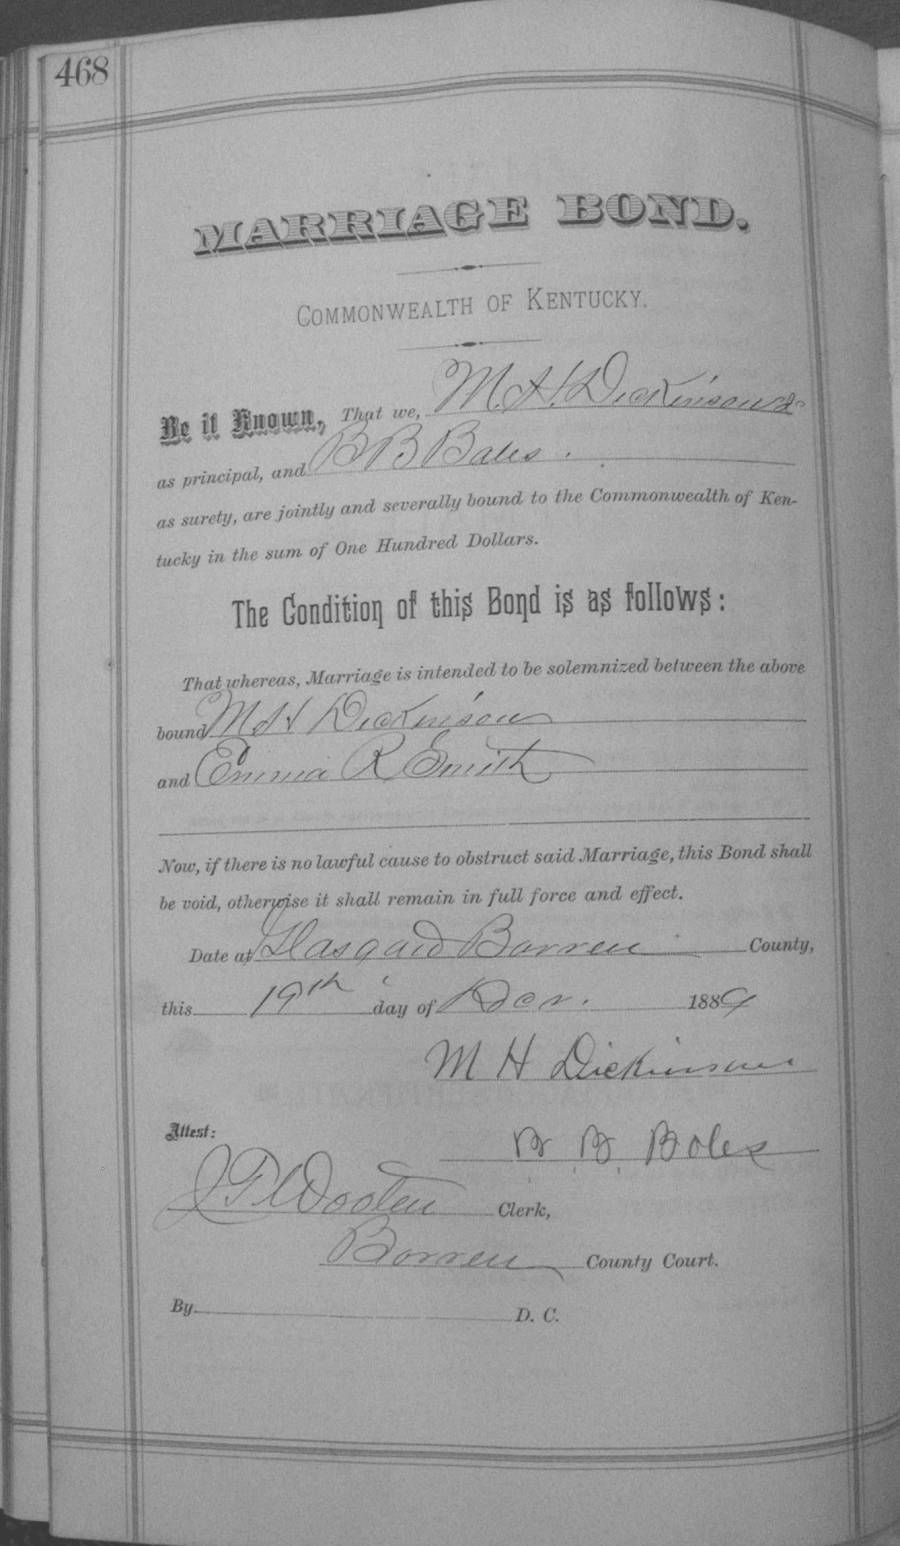 468
MARRIAGE BOND.
COMMONWEALTH OF KENTUCKY.
Be it Known, That we, M. H. Dickinson
as principal, and B B Bales.
as surety, are jointly and severally bound to the Commonwealth of Ken-
tucky in the sum of One Hundred Dollars.
The Condition of this Bond is as follows:
That whereas, Marriage is intended to be solemnized between the above
bound M H Dickinson
and Emma R Smith
Now, if there is no lawful cause to obstruct said Marriage, this Bond shall
be void, otherwise it shall remain in full force and effect.
Date at Glasgow Barren County,
this 19th day of Dec. 1889
M H Dickinson
Attest: B B Boles
J P Wooten Clerk,
Barren County Court.
By D. C.